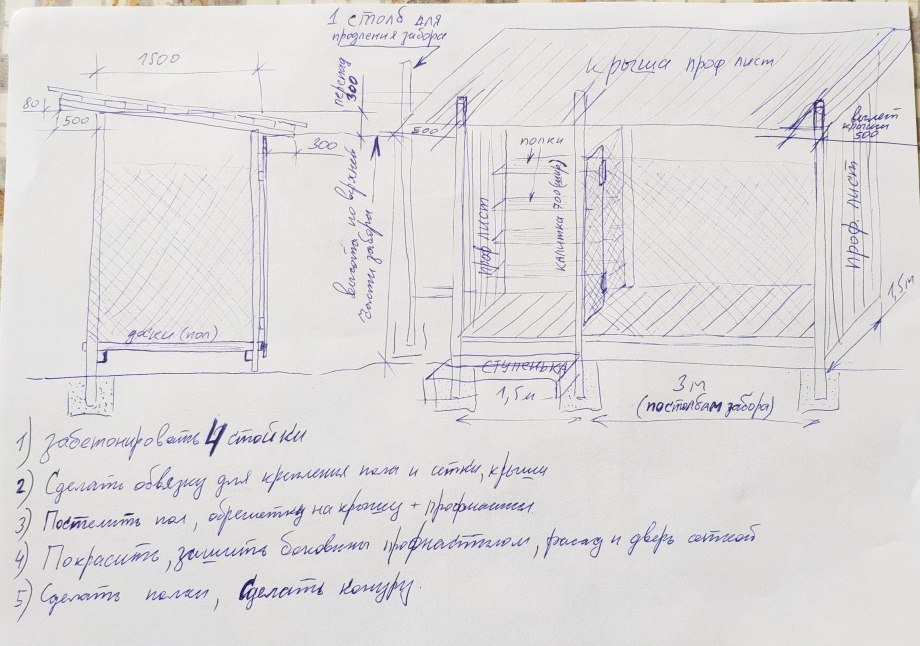 1 столб для
продления забора
1500
перепад
300
крыша проф лист
80
500
300
500
вылет
крыши
500
полки
высота по верхней
части забора
проф лист
калитка 700 (шир)
проф. лист
1,5м
доски (пол)
ступенька
1,5м
3м
(по столбам забора)
1) забетонировать 4 стойки
2) Сделать обвязку для крепления пола и сетки, крыши
3) Постелить пол, обрешетку на крышу + профнастил
4) Покрасить, зашить боковины профнастилом, фасад и дверь сеткой
5) Сделать полки, Сделать конуру.